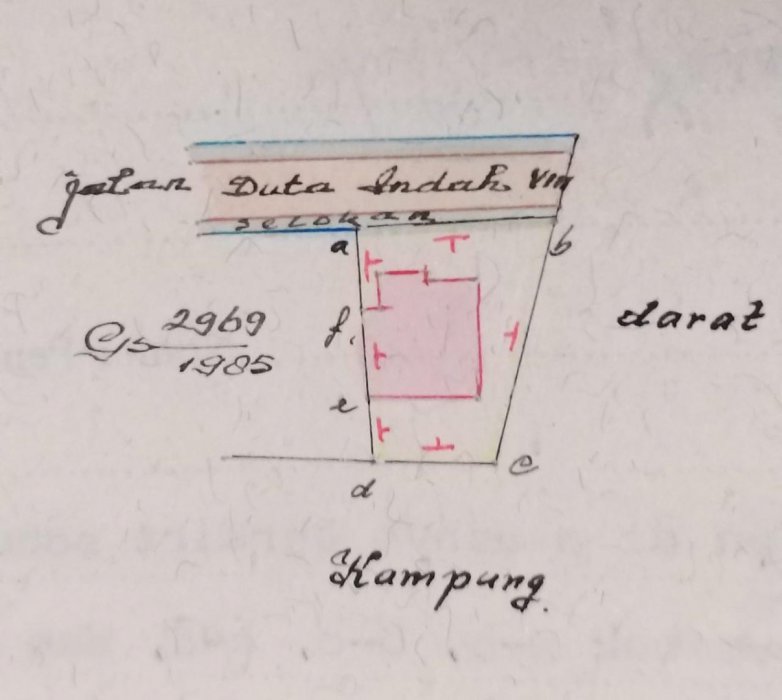 jalan Duta Indah VIII
selokan
a
b
f.
GS 2969
1985
darat
e
c
d
Kampung.